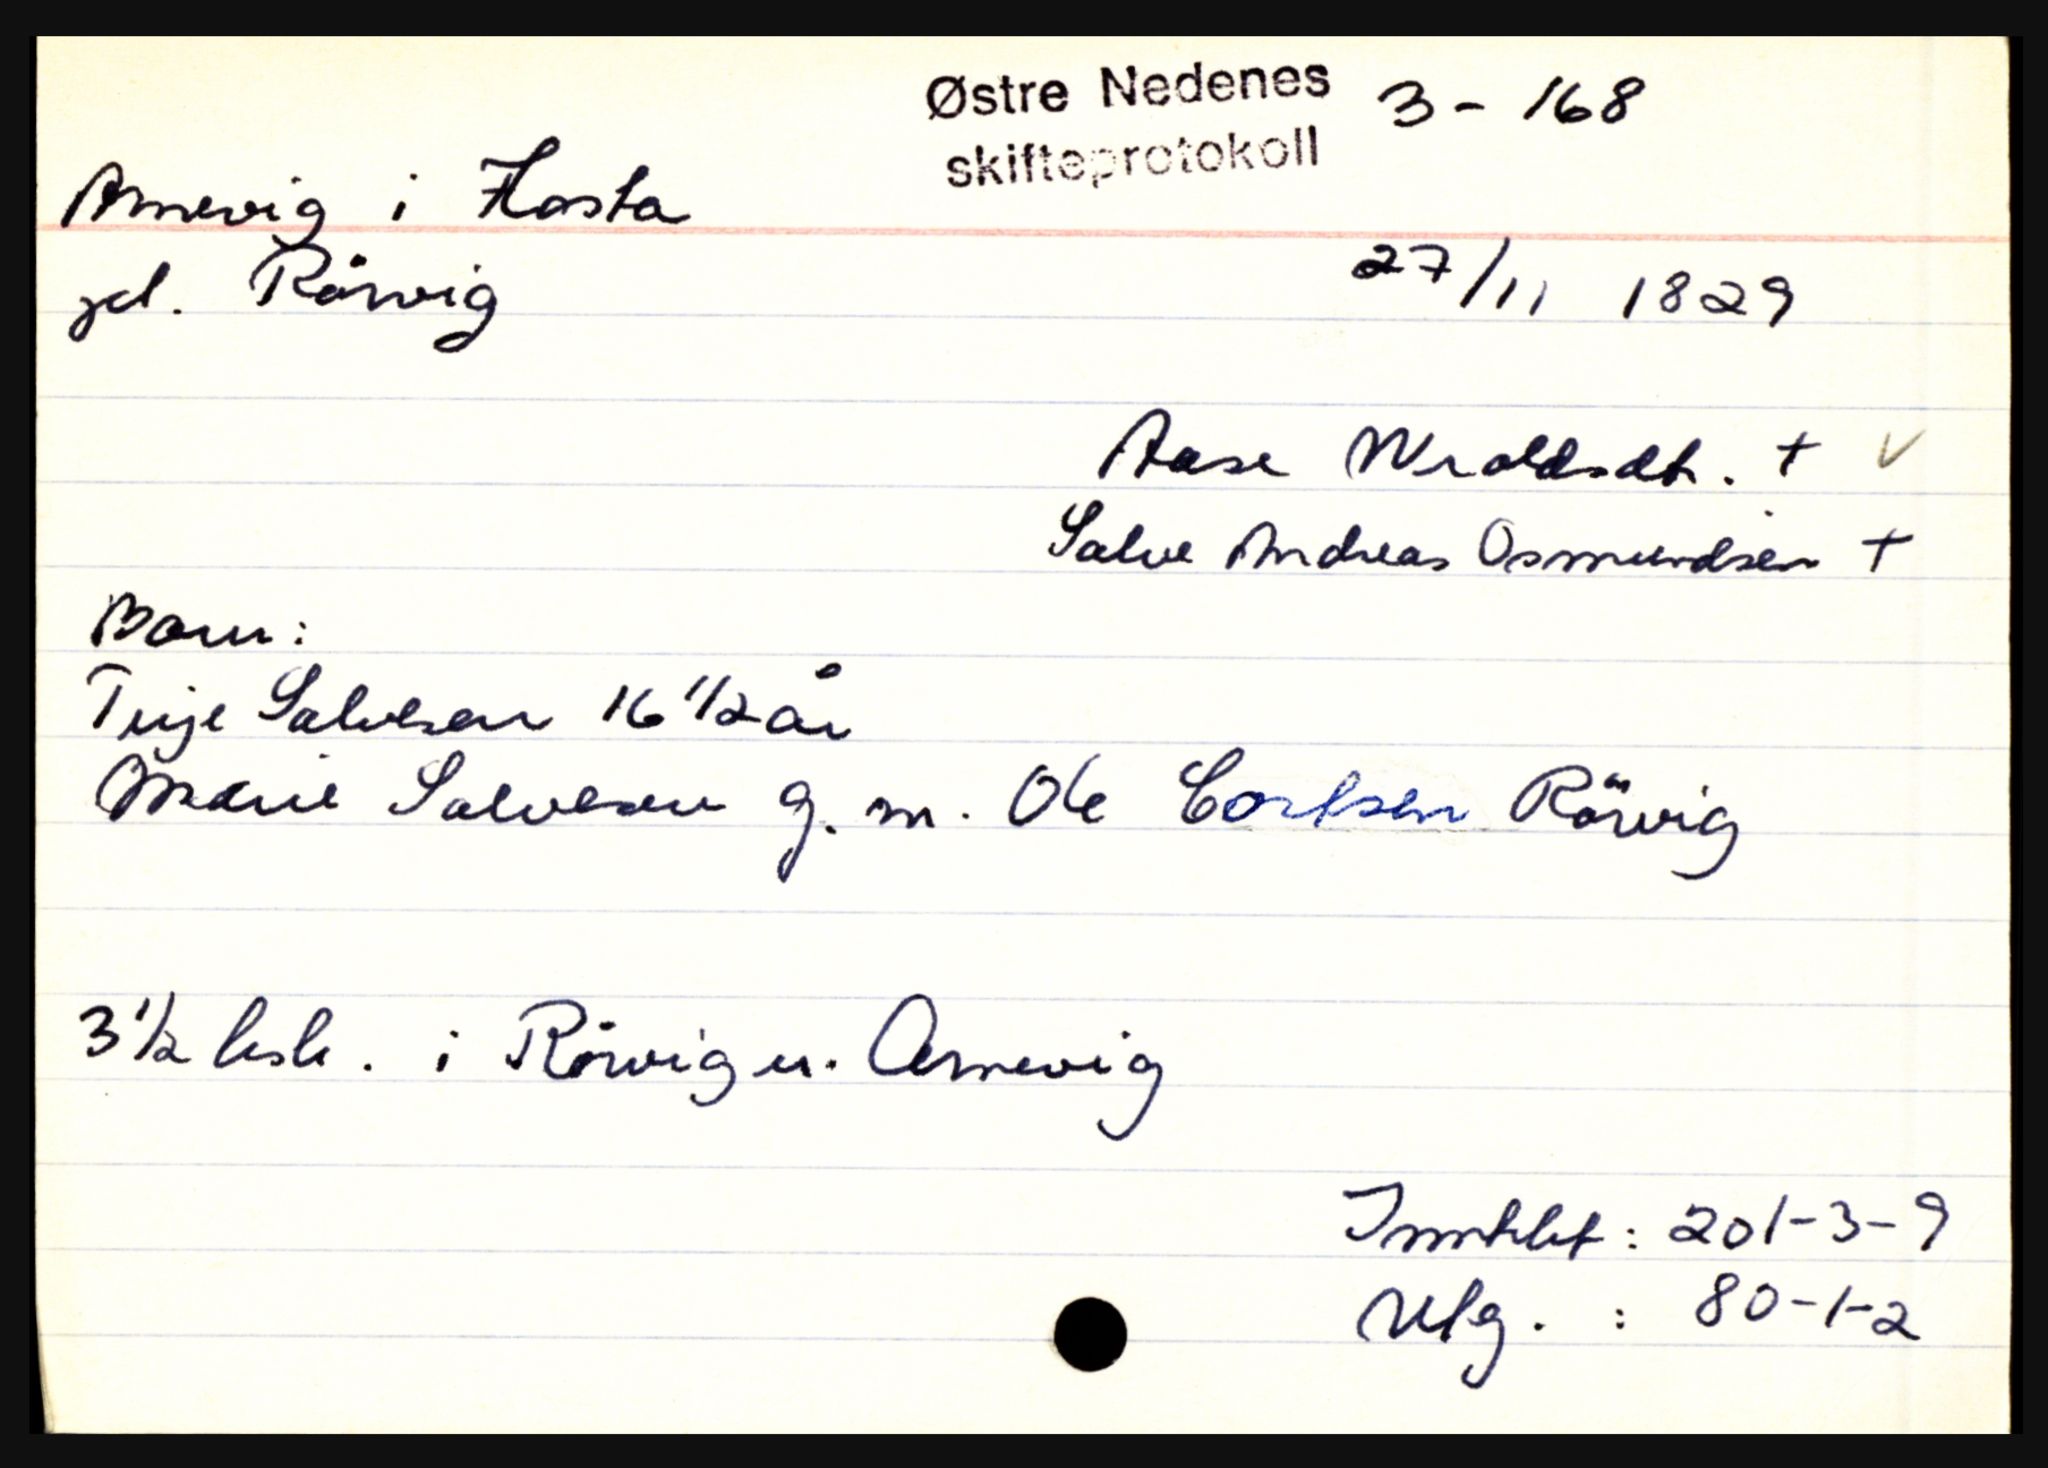 Østre Nedenes 3 - 168
skifteprotokoll
Arnevig i Flosta
gd. Rörvig
27/11 1829
Aase Wroldsdt. + V
Salve Andreas Osmundsen +
Barn:
Terje Salvesen 16 1/2 år
Marie Salvesen g. m. Ole Carlsen Rörvig
3 1/2 lisb. i Rörvig u. Arnevig
Inntekt: 201-3-9
Utg. : 80-1-2